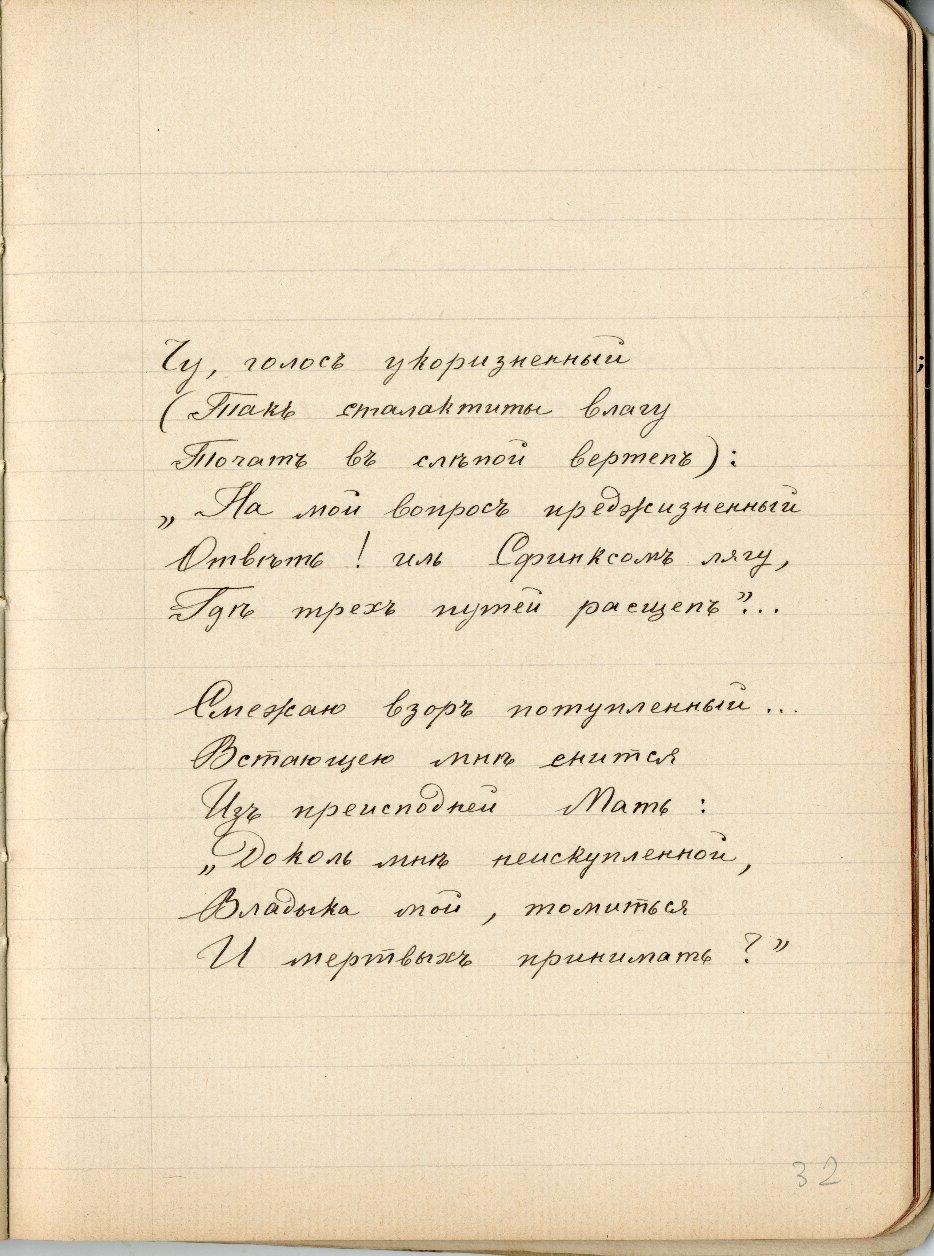 Чу, голосъ укоризненный
(Такъ сталактиты влагу
Точатъ въ слѣпой вертепъ):
„На мой вопросъ преджизненный
Отвѣть! иль Сфинксомъ лягу,
Гдѣ трехъ путей расщепъ”...
Смежаю взоръ потупленный...
Встающею мнѣ снится
Изъ преисподней Мать:
„Доколь мнѣ неискупленной,
Владыка мой, томиться
И мертвыхъ принимать?”
32